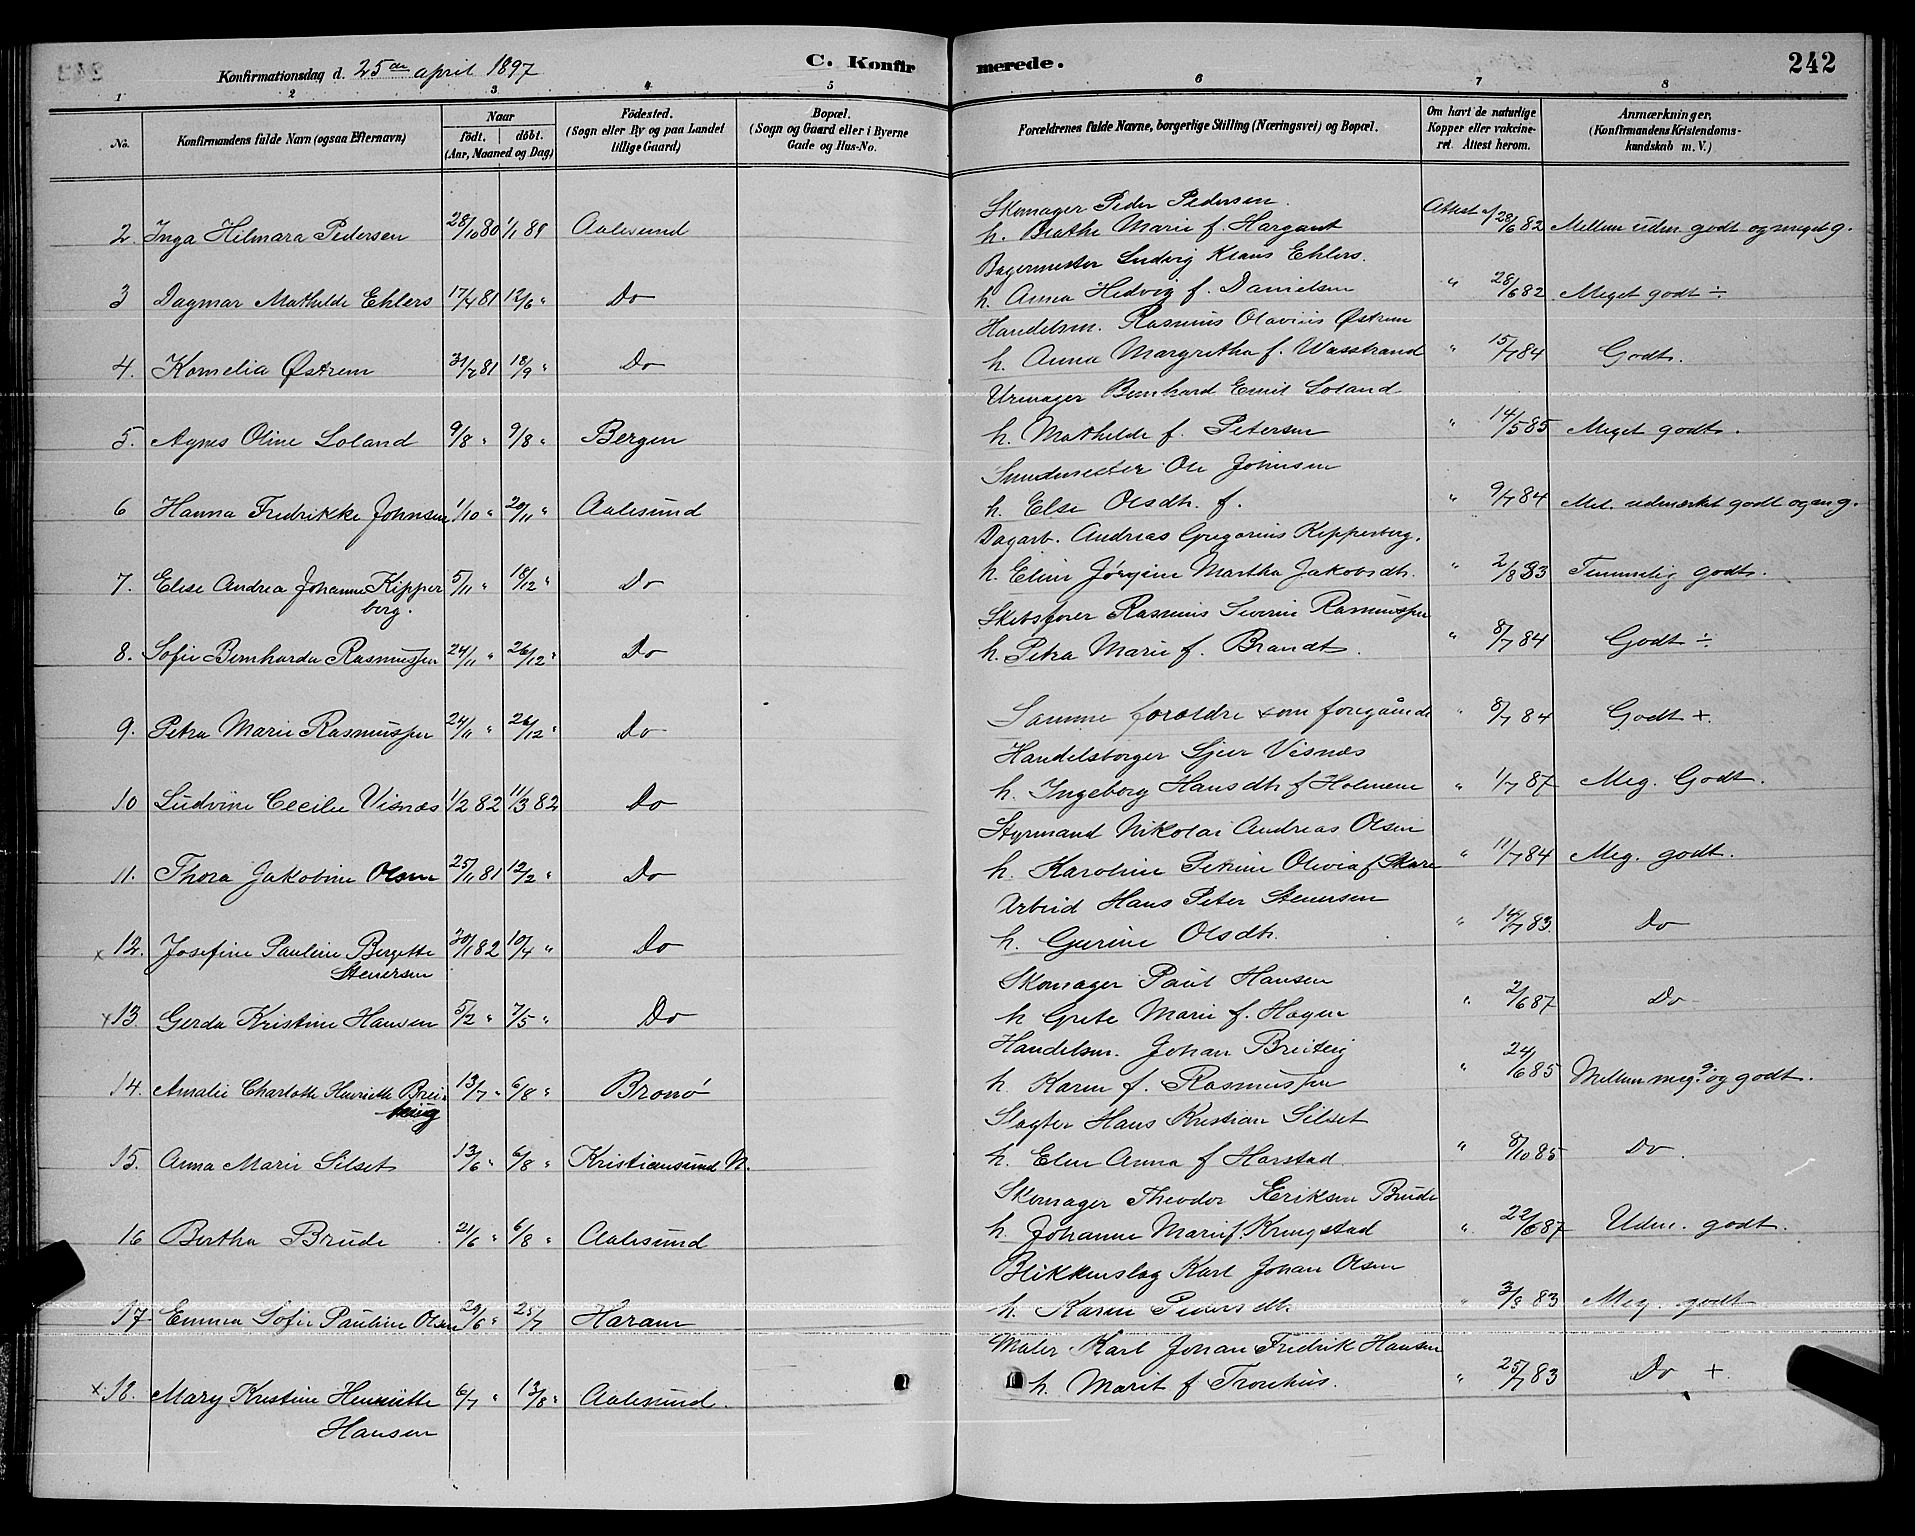 Konfirmationsdag d. 25de april 1897
C. Konfirmerede.
242
1 2 3 4 5 6 7 8
No.
Konfirmandens fulde Navn (ogsaa Efternavn)
Naar
födt. döbt.
(Aar, Maaned og Dag)
Födested.
(Sogn eller By og paa Landet
tillige Gaard)
Bopæl.
(Sogn og Gaard eller i Byerne
Gade og Hus-No.
Forældrenes fulde Navne, borgerlige Stilling (Næringsvei) og Bopæl.
Om havt de naturlige
Kopper eller vakcine-
ret. Attest herom.
Anmærkninger.
(Konfirmandens Kristendoms-
kundskab m. V.)
Skomager Peder Pedersen.
2. Inga Hilmara Pedersen 28/10 80 1/1 81 Aalesund h. Beathe Marie f. Hargaut Attest af 28/6 82 Mellem udm. godt og meget g.
Bagermester Ludvig Klaus Ehlers.
3 Dagmar Mathilde Ehlers 17/4 81 12/6 " Do h. Anna Hedvig f. Danielsen " 28/6 82 Meget godt ÷.
Handelsm. Rasmus Olavius Østrem
4. Kornelia Østrem 31/7 81 18/9 " Do h. Anna Margretha f. Wasstrand " 15/7 84 Godt.
Urmager Bernhard Emil Soland
5. Agnes Oline Soland 9/8 " 9/8 " Bergen h. Mathilde f. Petersen " 14/5 85 Meget godt.
Ole Johnsen
6 Hanna Fredrikke Johnsen 1/10 " 20/11 " Aalesund h. Else Olsdtr. f. " 9/7 84 Mel. udmærket godt og m g.
Dagarb. Andreas Gregorius Kipperberg.
7. Elise Andrea Johanne Kipper 5/11 " 18/12 " Do h. Elin Jørgine Martha Jakobsdtr. " 2/8 83 Temmelig godt.
berg.
Skibsfører Rasmus Severin Rasmussen
8. Sofie Bernharda Rasmussen 24/11 " 26/12 " Do h. Petra Marie f. Brandt. " 8/7 84 Godt ÷
9. Petra Marie Rasmussen 24/11 " 26/12 " Do Samme forældre som foregående " 8/7 84 Godt +.
Handelsborger Sjur Visnæs
10 Ludvine Cecilie Visnæs 1/2 82 11/3 82 Do h. Ingeborg Hansdtr f Holmene " 1/7 87 Meg. Godt.
Styrmand Nikolai Andreas Olsen
11. Thora Jakobine Olsen 25/11 81 12/2 " Do h. Karoline Petrine Olivia f Skare " 11/7 84 Meg. godt.
Arbeid Hans Peter Stenersen
x 12. Josefine Pauline Bergette 30/1 82 10/4 " Do h. Gurine Olsdtr. " 14/7 83 Do
Stenersen
Skomager Paul Hansen
x 13. Gerda Kristine Hansen 5/2 " 7/5 " Do h Grete Marie f. Hagen " 2/6 87 Do
Handelsm. Johan Breiteig
14. Amalie Charlotte Henriette Brei 13/7 " 6/8 " Bronø h. Karen f. Rasmussen " 24/6 85 Mellem meg. og godt.
teig
Slagter Hans Kristian Silset
15. Anna Marie Silset 13/6 " 6/8 " Kristiansund N. h. Elen Anna f Harstad. " 8/10 85 Do.
Skomager Theodor Eriksen Brude
16 Bertha Brude 21/6 " 6/8 " Aalesund h. Johanne Marie f. Kringstad " 22/6 87 Udm. godt.
Blikkenslag Karl Johan Olsen
17. Emma Sofie Pauline Olsen 29/6 " 25/7 Haram h. Karen Pedersdtr. " 3/8 83 Meg. godt
Maler Karl Johan Fredrik Hansen
x 18. Mary Kristine Henriette 6/7 " 13/8 " Aalesund. h. Marit f Tronhus. " 25/7 83 Do +
Hansen